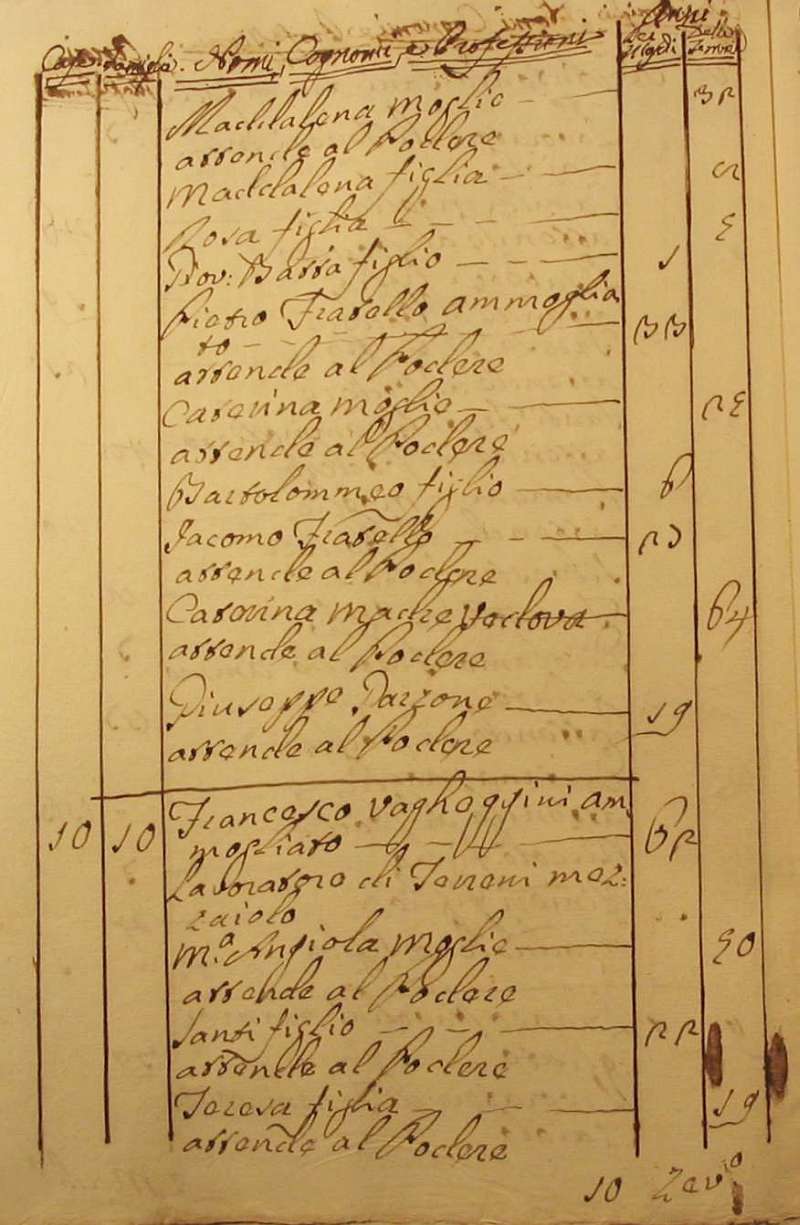 Case. Famiglie. Nomi, Cognomi, e Professioni Anni
Dei Delle
Maddalena moglie 32
attende al Podere
Maddalena figlia
Rosa figlia 5
Giov: Batta figlio 1
Pietro Fratello ammoglia
to 33
attende al Podere
Caterina moglie 25
attende al Podere
Bartolommeo figlio 6
Jacomo Fratello
attende al Podere
Caterina madre Vedova 64
attende al Podere
Giuseppe Garzone 19
attende al Podere
10 10 Francesco Vagheggini am
mogliato 62
Lavoratore di Terreni mez:
zaiolo
M.a Angiola moglie 50
attende al Podere
Santi figlio 22
attende al Podere
Teresa figlia 19
attende al Podere
10